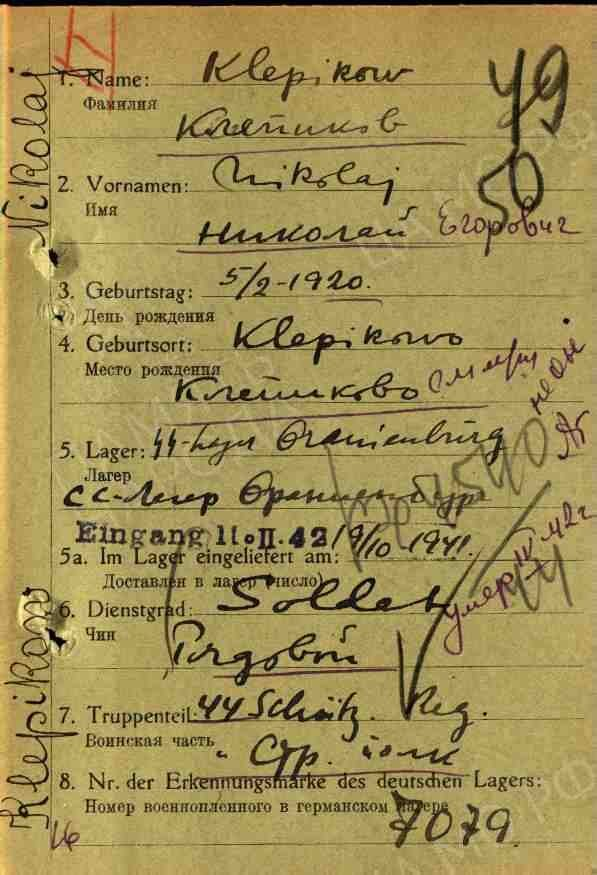 II
49
50
Nikolaj
Klepikow
1. Name: Klepikow
Фамилия
Клепиков
2. Vornamen: Nikolaj
Имя
Николай Егорович
3. Geburtstag: 5/2-1920.
День рождения
4. Geburtsort: Klepikowo
Место рождения
Клепиково
5. Lager: SS-Lager Oranienburg
Лагер
СС-Лагер Ораниенбург
Eingang 11. II. 42 9/10-1941.
5a. Im Lager eingeliefert am:
Доставлен в лагер (число)
умер IV 42г
6. Dienstgrad: Soldat
Чин
Рядовой
7. Truppenteil: 44 Schütz. Reg.
Воинская часть " Стр. полк
8. Nr. der Erkennungsmarke des deutschen Lagers:
Номер военнопленного в германском лагере
7079
16